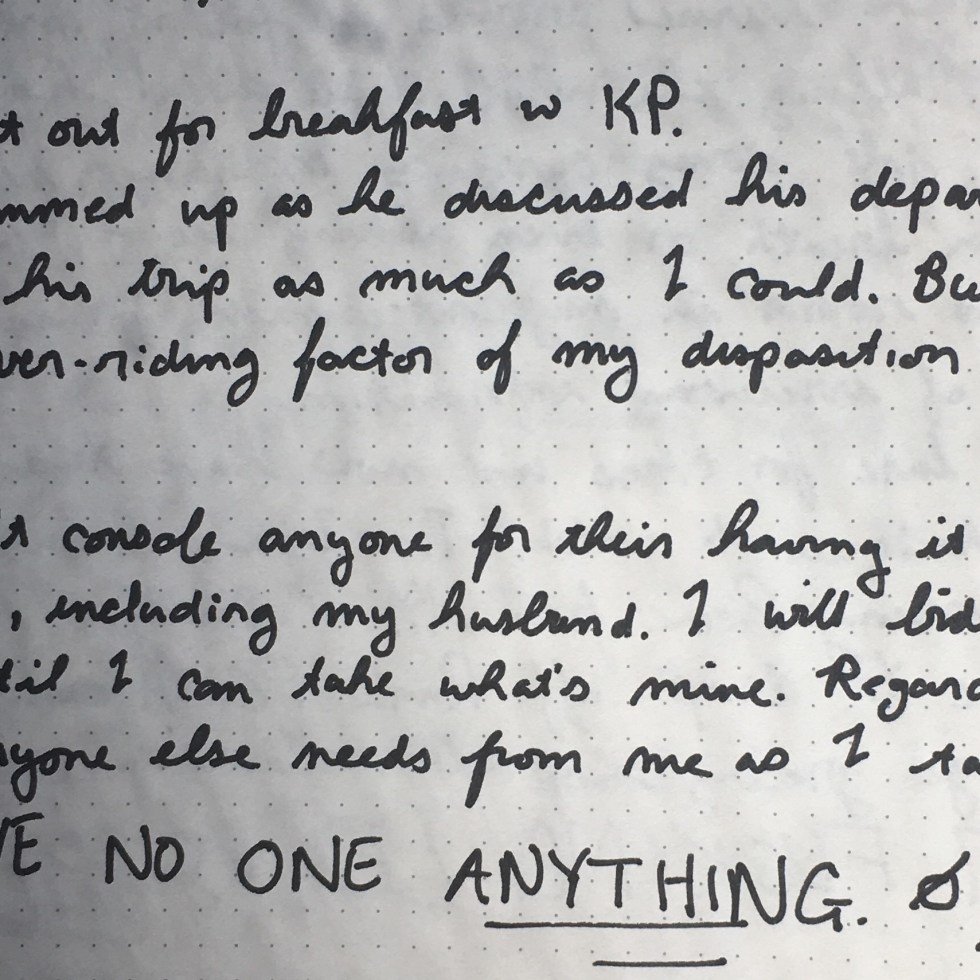 t out for breakfast w KP.
mmed up as he discussed his depar
his trip as much as I could. Bu
ver-riding factor of my disposition
't console anyone for their having it
, including my husband. I will bid
til I can take what's mine. Regard
nyone else needs from me as I ta
VE NO ONE ANYTHING.